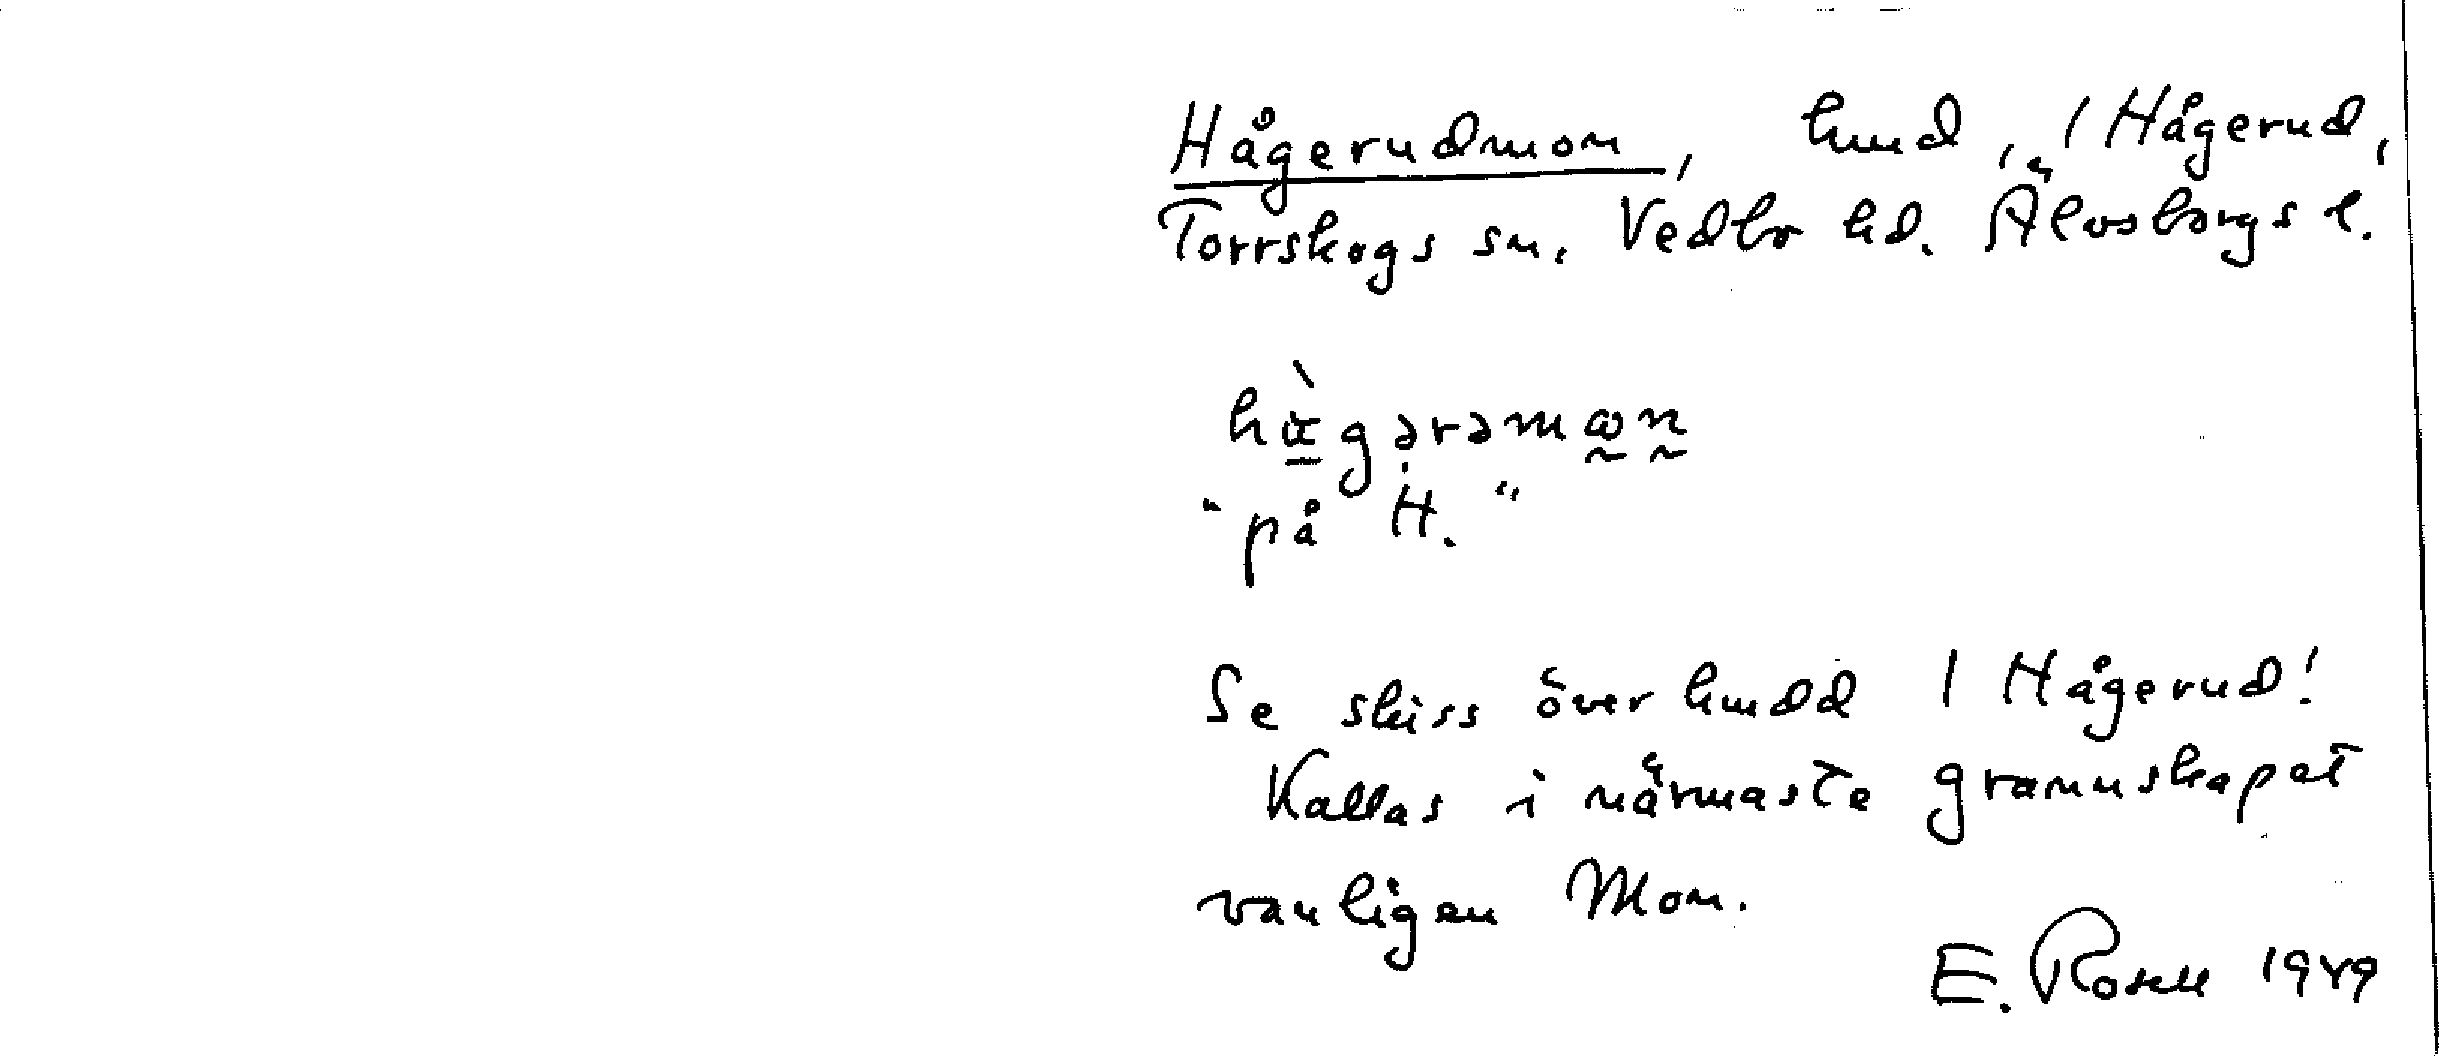 Hågerudmon, hmd, 1 Hågerud,
Torrskogs sn. Vedbo hd. Älvsborgs l.
hàgərəmωn
"på H."
Se skiss över hmdd 1 Hågerud!
Kallas i närmaste grannskapet
vanligen Mon.
E. Rosell 1949